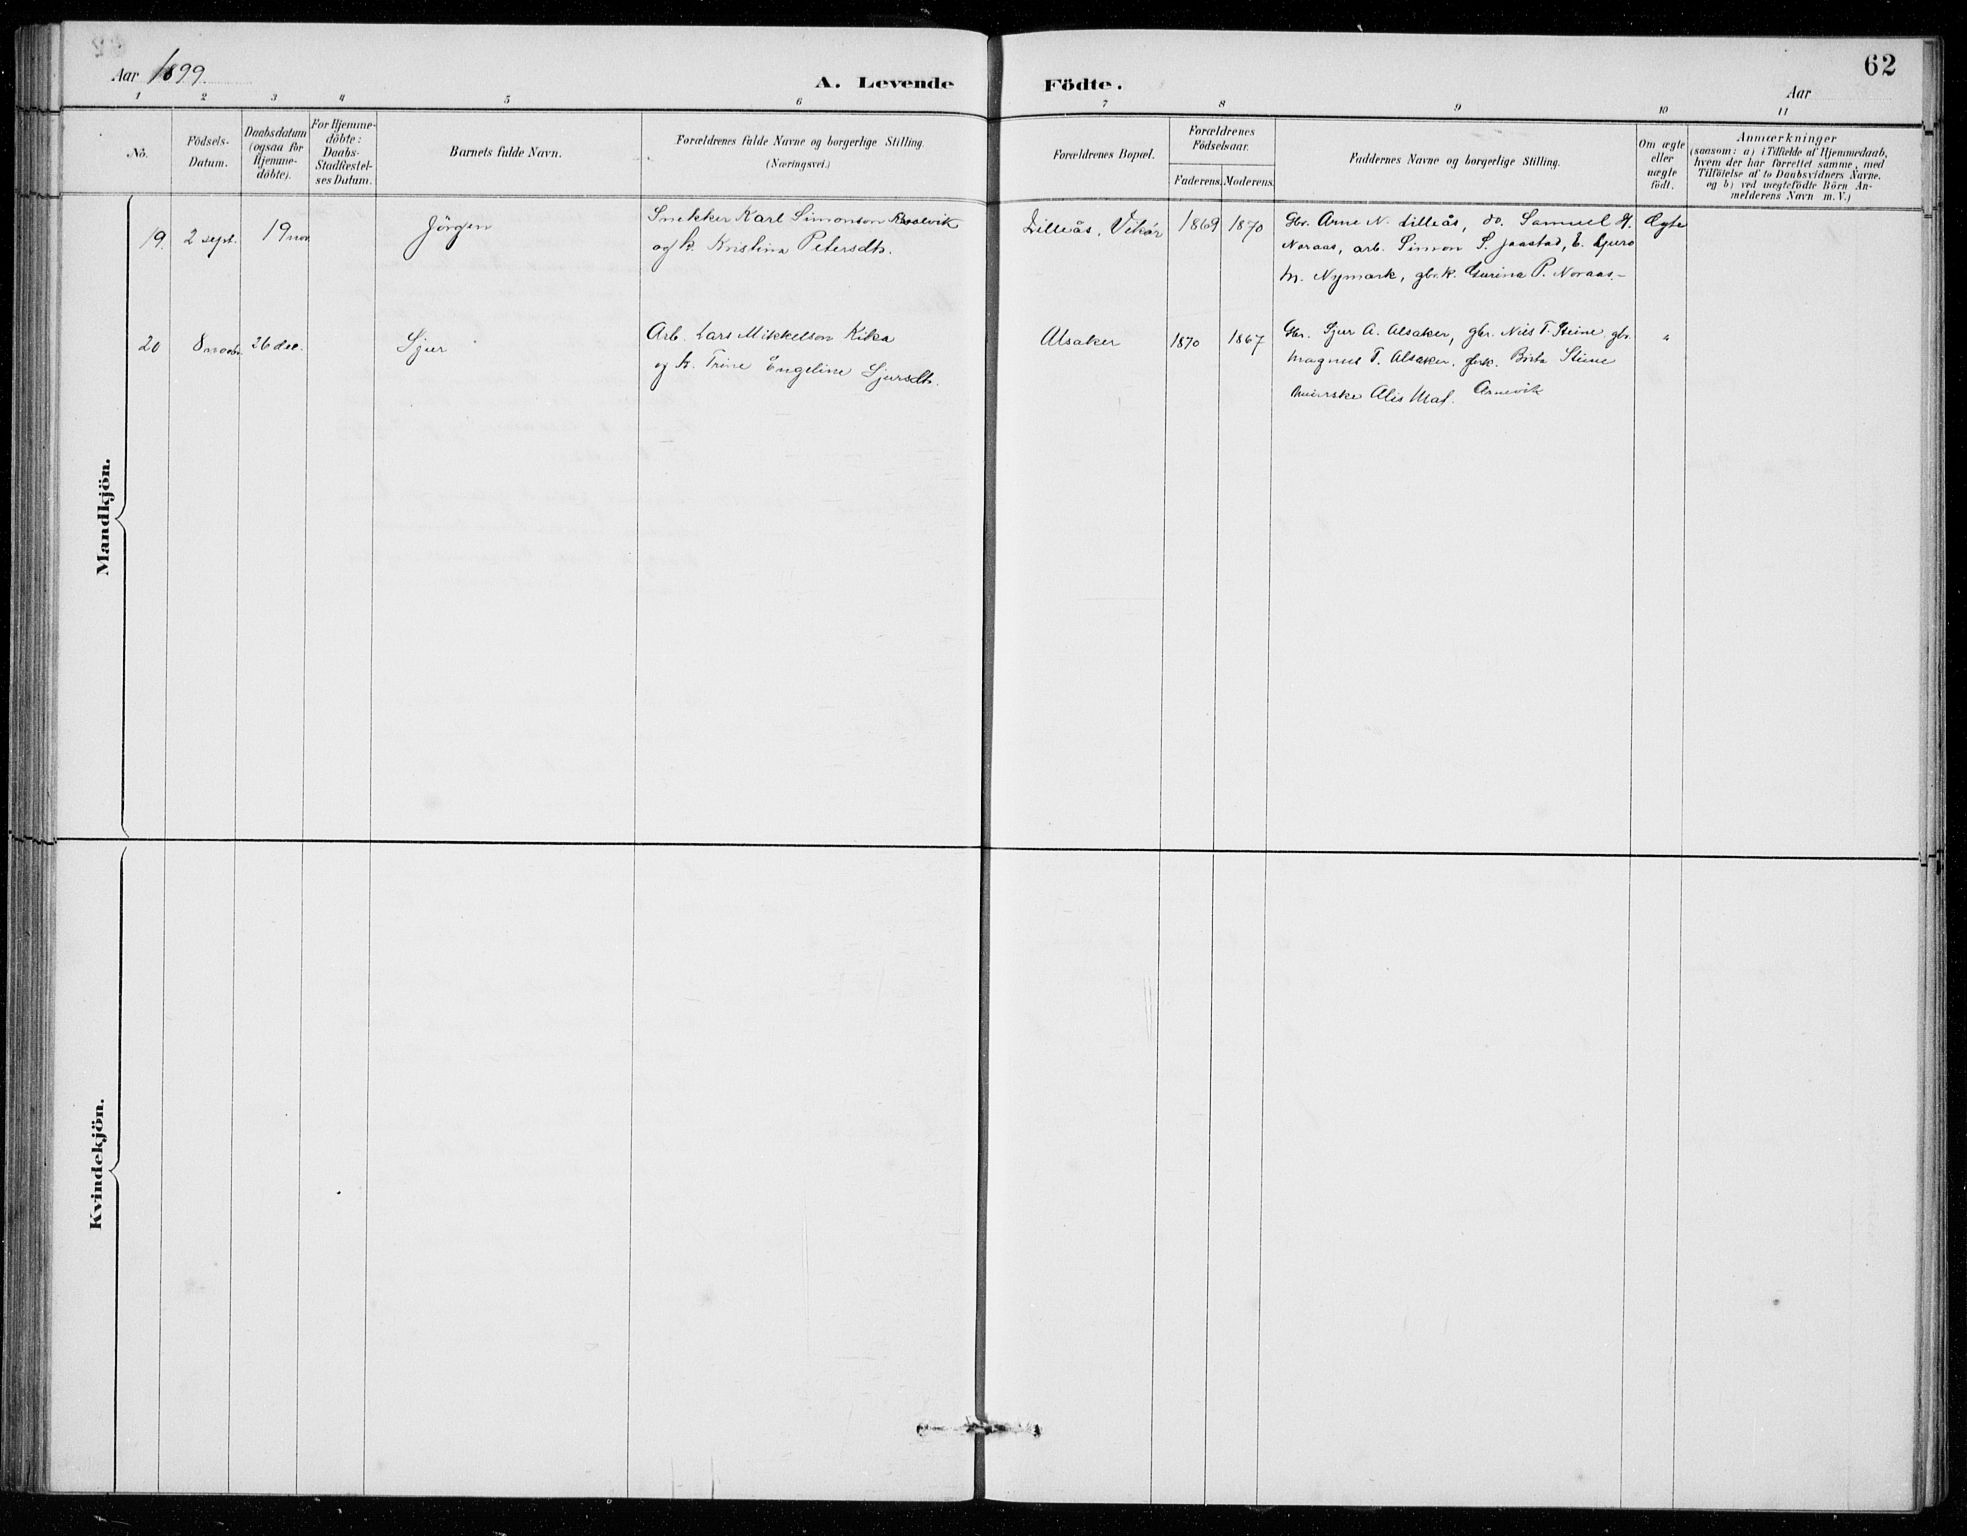 62
Aar 1899.
A. Levende Födte.
Aar
1 2 3 4 5 6 7 8 9 10 11
No.
Födsels-
Datum.
Daabsdatum
(ogsaa for
Hjemme-
döbte).
For Hjemme-
döbte:
Daabs-
Stadfæstel-
ses Datum.
Barnets fulde Navn.
Forældrenes fulde Navne og borgerlige Stilling.
(Næringsvei.)
Forældrenes Bopæl.
Forældrenes
Födselsaar.
Faderens. Moderens.
Faddernes Navne og borgerlige Stilling.
Om ægte
eller
uægte
födt.
Anmærkninger
(saasom: a) i Tilfælde af Hjemmedaab,
hvem der har forrettet samme, med
Tilföielse af to Daabsvidners Navne,
og b) ved uægtefödte Börn An-
melderens Navn m. V.)
Mandkjön.
19. 2 sept. 19 nov. Jörgen
Snekker Karl Simonson
og k. Kristina Petersdtr.
Lilleås, Vikör 1869 1870
Gbr. Arne N. Lilleås, do. Samuel H.
Noraas, arb. Simon S. Jaastad, E. Guro
M. Nymark, gbr.k. Gurina P. Noraas.-
Ægte
20 8 novbr. 26 dec. Sjur
Arb. Lars Mikkelson Kika
og k. Trine Engeline Sjursdtr.
Alsaker 1870 1867
Gbr. Sjur A. Alsaker, gbr. Nils T. Steine gbr.
Magnus T. Alsaker, gbrk. Brita Steine
Alis Mat. Arnevik
"
Kvindekjön.